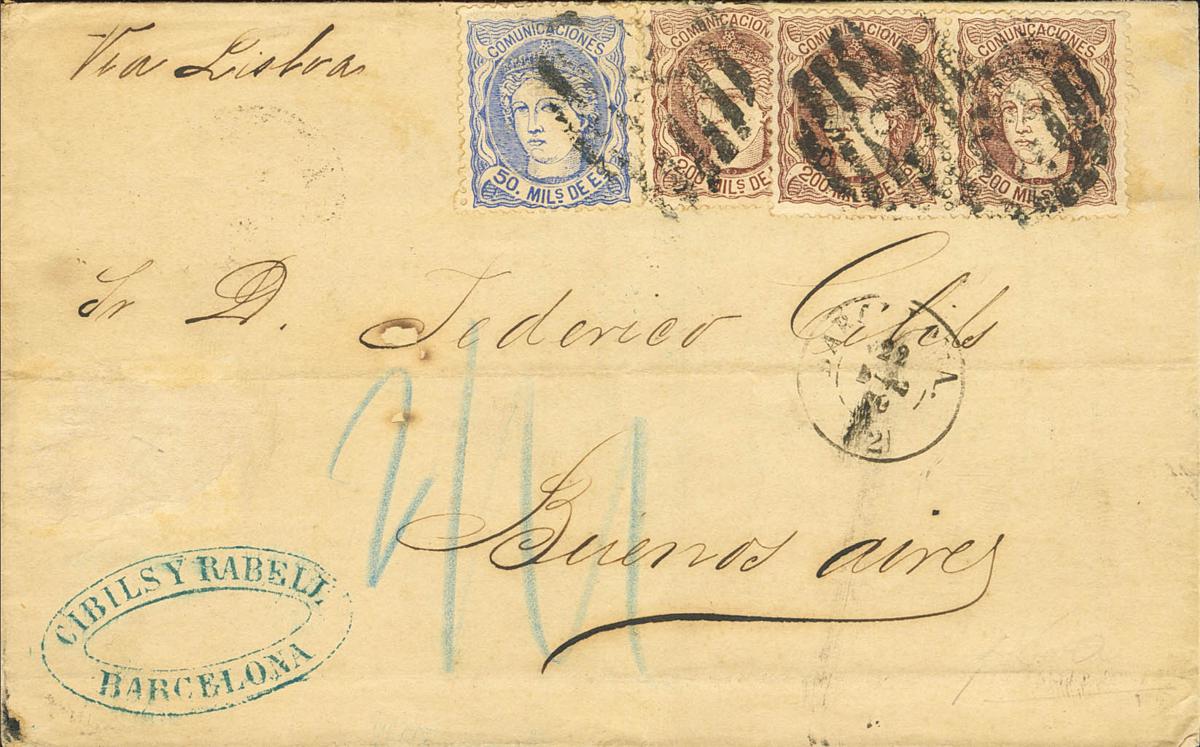 Via Lisboa
COMUNICACIONES
50. MILS DE ES
COMUNICACION
200 MILS DE
COMUNICACIONES
200 MILS DE
COMUNICACIONES
200 MILS DE
Sr D. Federico Cibils
22
Buenos aires
CIBILS Y RABELL
BARCELONA